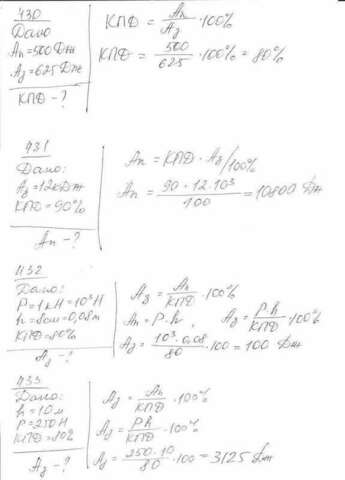 430
Дано
Aп=500Дж
Aз=625Дж
КПД-?
КПД = Aп/Aз ·100%
КПД = 500/625 ·100% = 80%
431
Дано:
Aз=12кДж
КПД=90%
Aп-?
Aп = КПД · Aз/100%
Aп = 90·12·10³/100 = 10800 Дж
432
Дано:
P=1кН=10³Н
h=8см=0,08м
КПД=80%
Aз-?
Aз = Aп/КПД ·100%
Aп = P·h, Aз = P·h/КПД ·100%
Aз = 10³·0,08/80 ·100 = 100 Дж
433
Дано:
h=10м
P=250Н
КПД=80%
Aз-?
Aз = Aп/КПД ·100%
Aз = Ph/КПД ·100%
Aз = 250·10/80 ·100 = 3125 Дж